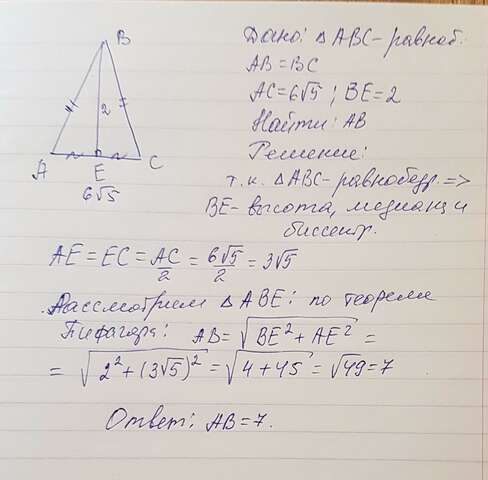 B
2
A
E
C
6√5
Дано: △ABC - равноб.
AB = BC
AC = 6√5 ; BE = 2
Найти: AB
Решение:
т.к. △ABC - равнобедр. =>
BE - высота, медиана и
биссектр.
AE = EC = AC/2 = 6√5/2 = 3√5
Рассмотрим △ABE: по теореме
Пифагора: AB = √(BE² + AE²) =
= √(2² + (3√5)²) = √(4 + 45) = √49 = 7
Ответ: AB = 7.